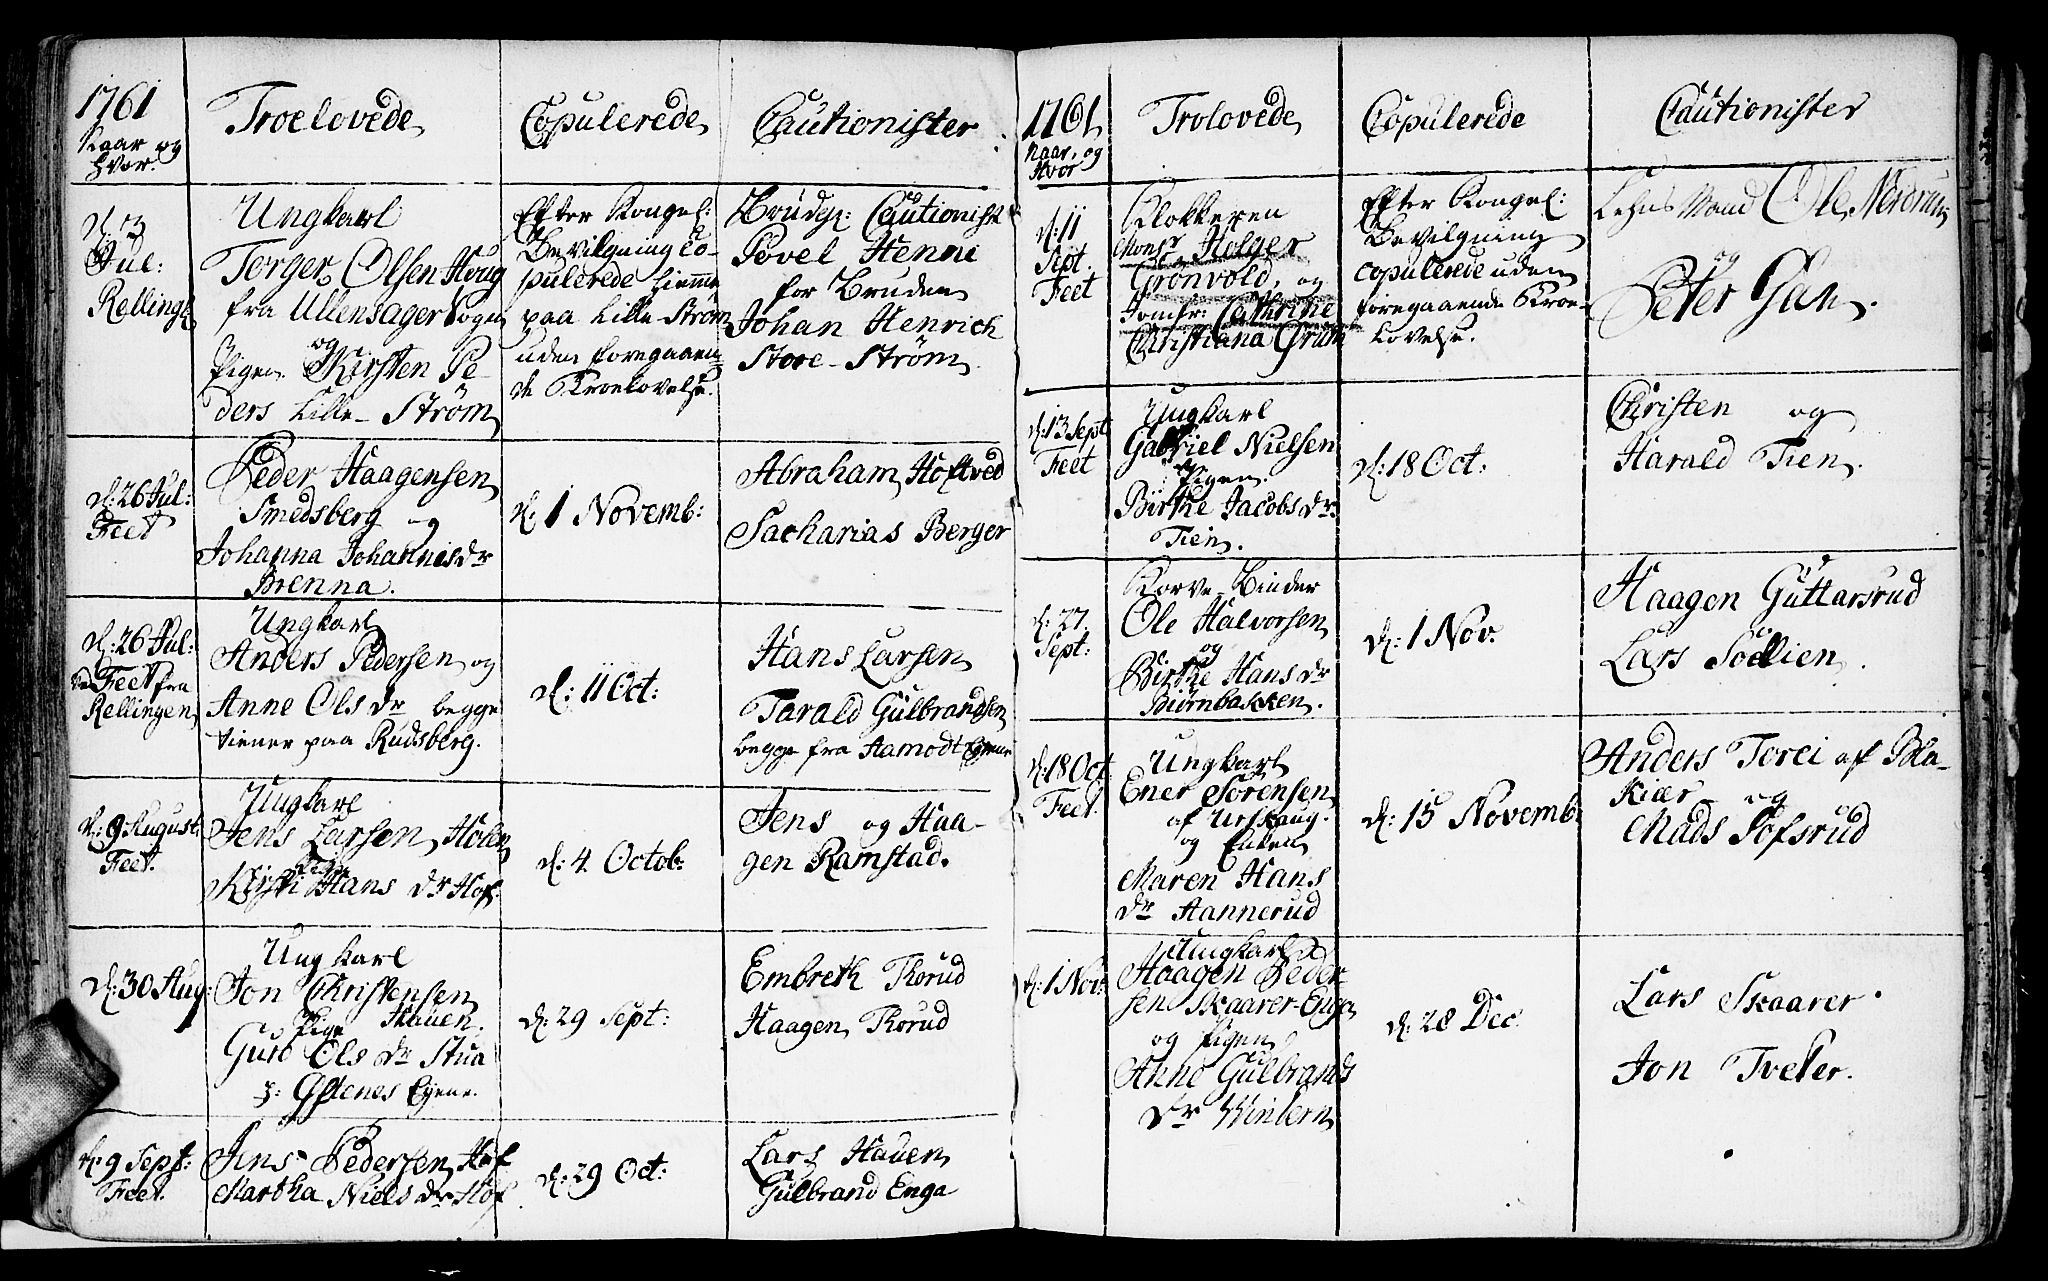 1761
Naar og
hvor.
Troelovede
Copulerede
Cautionister
d. 3
Jul:
Relling
Ungkarl
Torger Olsen Houg
fra Ullensager Sogn
og
Pigen Kirsten Pe-
ders Lille-Strøm
Efter Kongel:
Bevilgning Co-
pulerede hiemme
paa Lille-Strøm
uden foregaaen-
de Troelovelse.
Brudg: Cautionist
Povel Henni
for Bruden
Johan Henrich
Store-Strøm
d: 26 Jul:
Feet
Peder Haagensen
Smedsberg og
Johanna Johannisdr
Brenna.
d. 1 Novemb:
Abraham Hoftved
Sacharias Berger
d: 26 Jul:
Feet fra
Rellingen
Ungkarl
Anders Pedersen og
Anne Ols dr begge
tiener paa Rudsberg.
d: 11 Oct:
Hans Larsen
Tarald Gulbrandsen
begge fra Aamodt Eyene
d: 9 August:
Feet.
Ungkarl
Jens Larsen Holen
Pige
Kirsti Hans dr Hof.
d: 4 Octob:
Jens og Haa-
gen Ramstad.
d: 30 Aug:
Ungkarl
Jon Christensen
Pige Hauen.
Guro Ols dr Stua
Eyene.
d: 29 Sept:
Embreth Thorud
Haagen Thorud
d: 9 Sept:
Feet.
Jens Pedersen Hof
Martha Niels dr Hof
d: 29 Oct:
Lars Hauen
Gulbrand Enga
1761
Naar, og
Hvor
Trolovede
Copulerede
Cautionister
d: 11
Sept.
Feet
Klokkeren
Monsr Holger
Grønvold, og
Jomfr: Cathrine
Christiana Gram
Efter Kongel:
Bevilgning
copulerede uden
foregaaende Troe-
lovelse.
Lehns Mand Ole Nerdrum
og
Peter Gan.
d: 13 Sept
Feet
Ungkarl
Gabriel Nielsen
Pigen.
Birthe Jacobsdr:
Tien.
d: 18 Oct:
Christen og
Harald Tien.
d: 27.
Sept:
Korve-Binder
Ole Halvorsen
og
Birthe Hans dr
Biørnbakken.
d: 1 Nov.
Haagen Guttarsrud
Lars Sødlien.
d: 18 Oct
Feet.
Ungkarl
Ener Sørensen
af Urskaug.
og Enken
Maren Hans
dr Aannerud
d: 15 Novemb:
Anders Torei af Bla-
kier og
Mads Tofsrud
d: 1 Nov:
Ungkarl
Haagen Peder
sen Skaarer-Enga
og Pigen
Anne Gulbrands
dr Vinlern
d: 28 Dec
Lars Skaarer.
Jon Tveter.